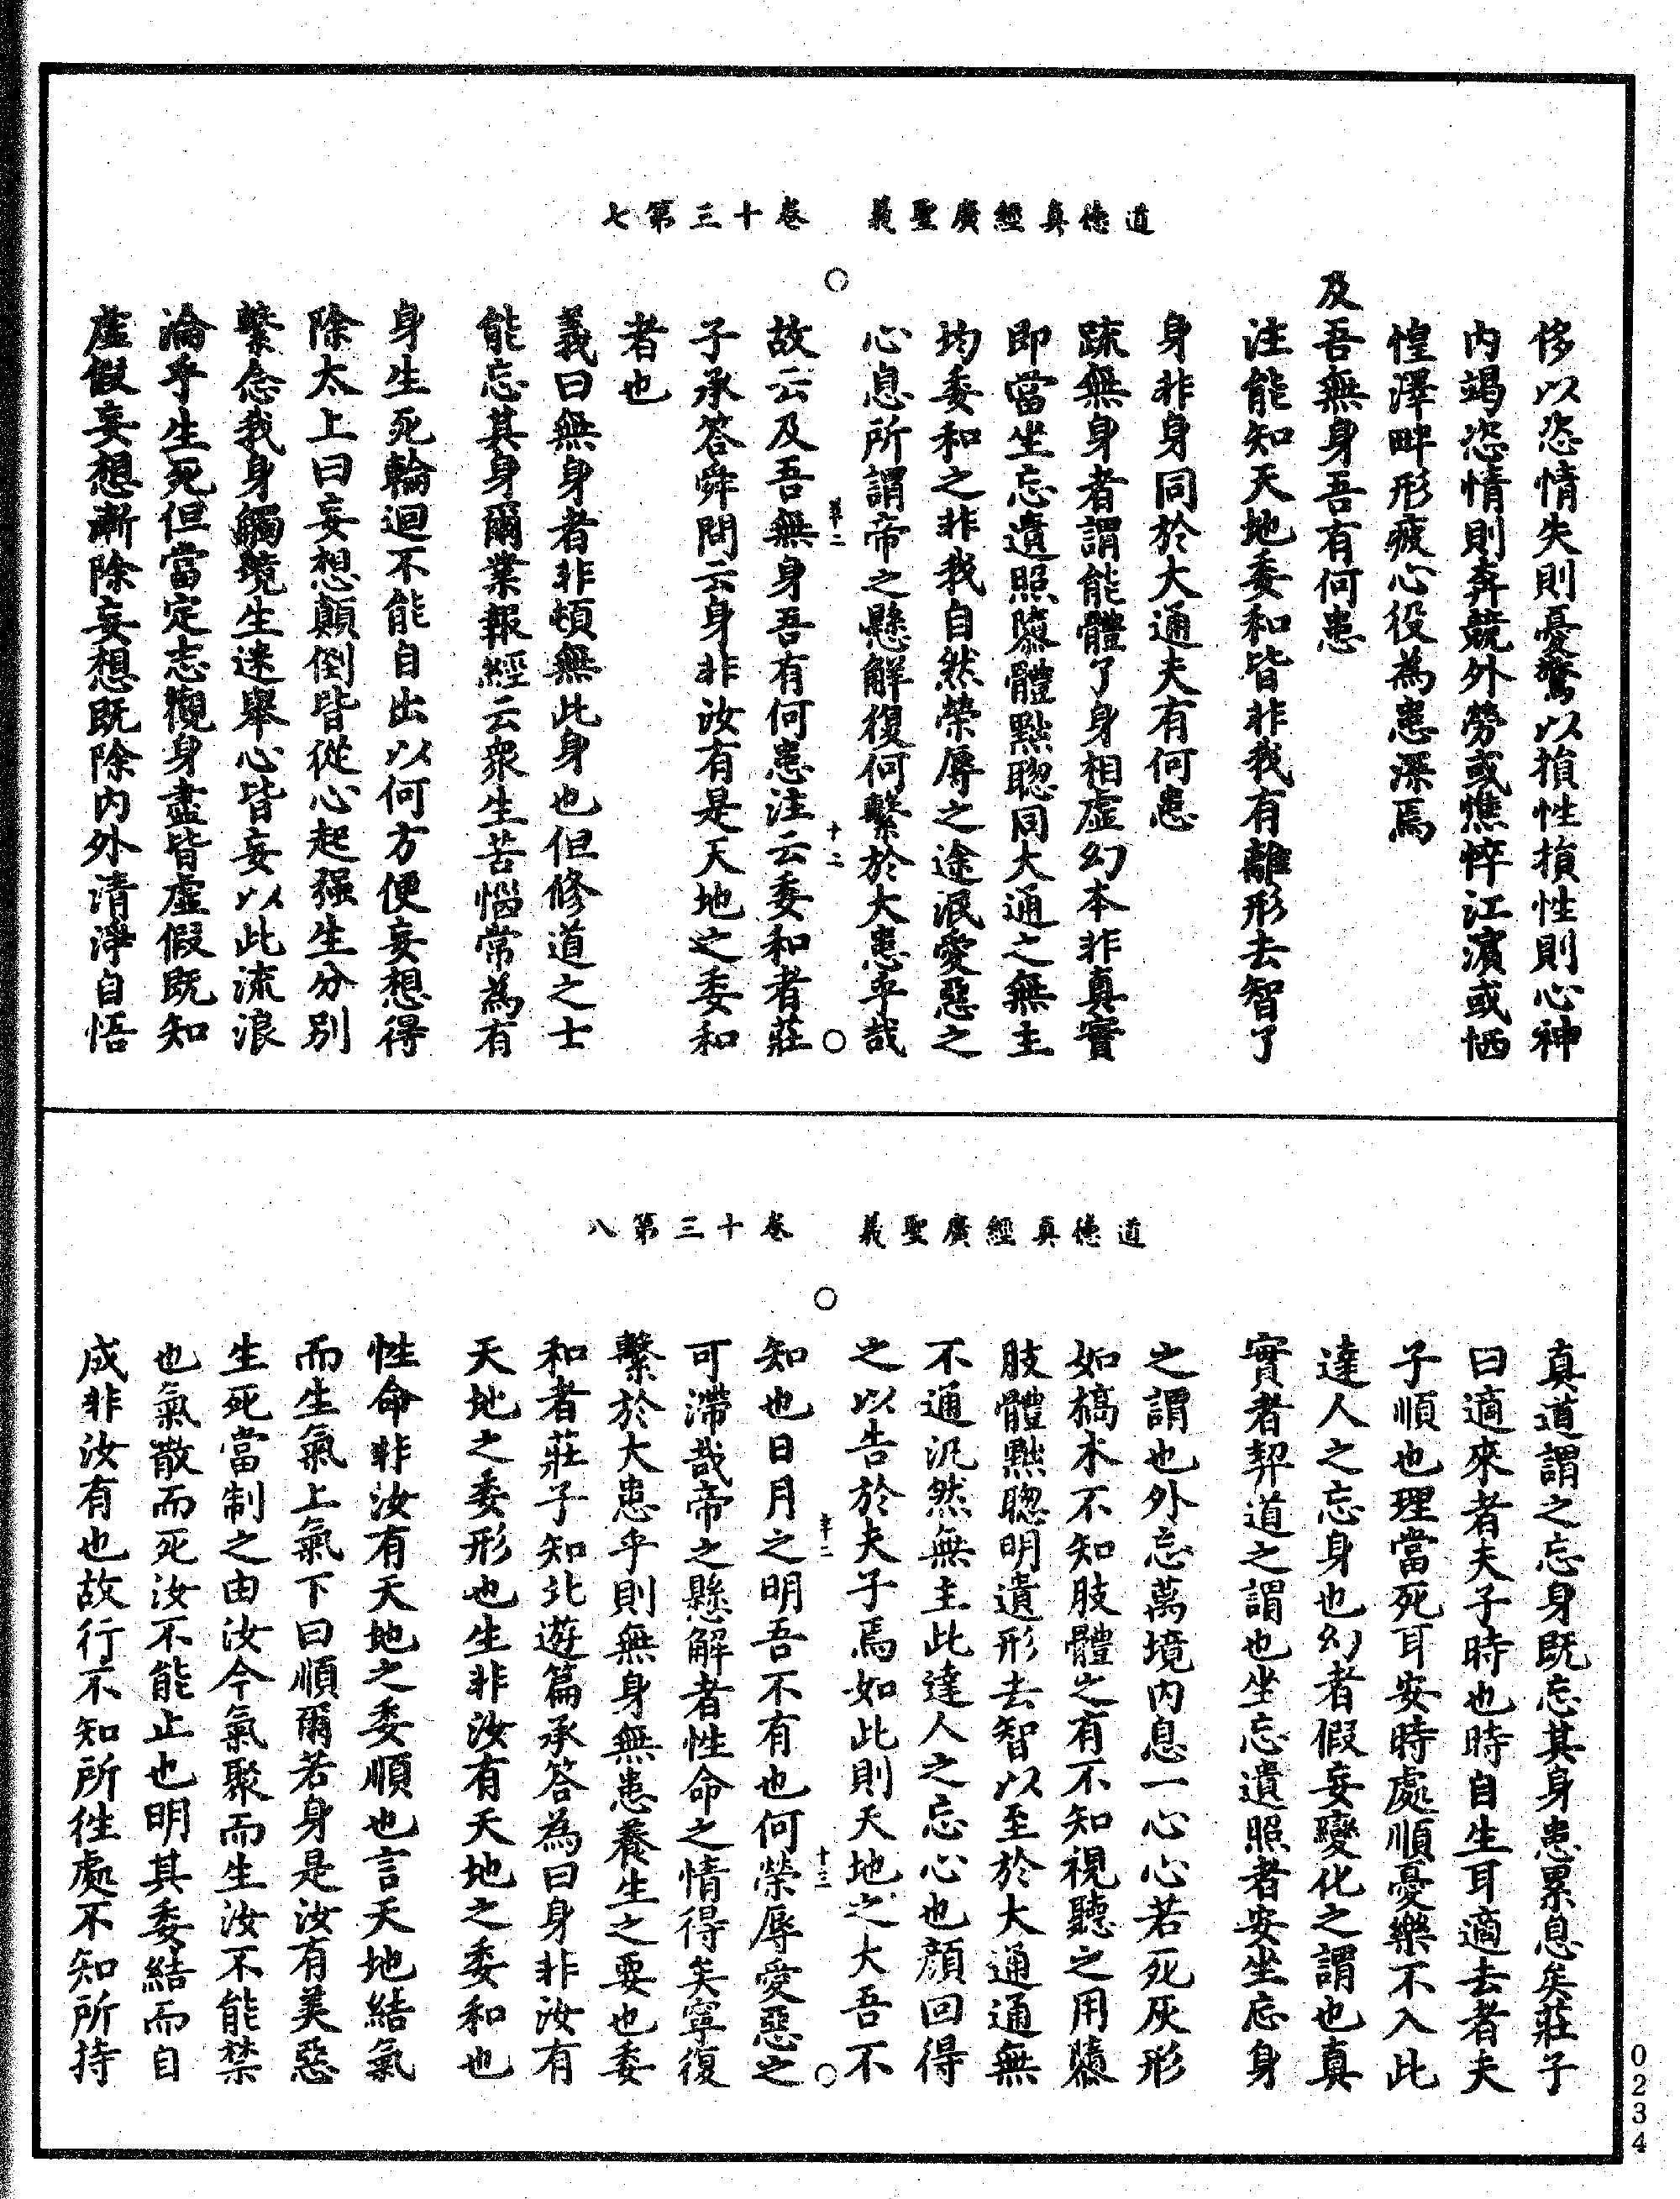 道德真經廣聖義　卷十三第七
侈以恣情失則憂驚以損性損性則心神
内竭恣情則奔競外勞或憔悴江濱或恓
惶澤畔形疲心役為患深焉
及吾無身吾有何患
注能知天地委和皆非我有離形去智了
身非身同於大通夫有何患
疏無身者謂能體了身相虛幻本非真實
即當坐忘遺照隳體黜聰同大通之無主
均委和之非我自然榮辱之途泯愛惡之
心息所謂帝之懸解復何繫於大患乎哉
十二
故云及吾無身吾有何患注云委和者莊
子承答舜問云身非汝有是天地之委和
者也
義曰無身者非頓無此身也但修道之士
能忘其身爾業報經云衆生苦惱常為有
身生死輪迴不能自出以何方便妄想得
除太上曰妄想顛倒皆從心起强生分別
繫念我身觸境生迷舉心皆妄以此流浪
淪乎生死但當定志觀身盡皆虛假既知
虛假妄想漸除妄想既除内外清淨自悟
道德真經廣聖義　卷十三第八
真道謂之忘身既忘其身患累息矣莊子
曰適來者夫子時也時自生耳適去者夫
子順也理當死耳安時處順憂樂不入此
達人之忘身也幻者假妄變化之謂也真
實者契道之謂也坐忘遺照者安坐忘身
之謂也外忘萬境内息一心心若死灰形
如槁木不知肢體之有不知視聽之用隳
肢體黜聰明遺形去智以至於大通通無
不通汎然無主此達人之忘心也顔回得
之以告於夫子焉如此則天地之大吾不
十三
知也日月之明吾不有也何榮辱愛惡之
可滯哉帝之懸解者性命之情得矣寧復
繫於大患乎則無身無患養生之要也委
和者莊子知北遊篇承答為曰身非汝有
天地之委形也生非汝有天地之委和也
性命非汝有天地之委順也言天地結氣
而生氣上氣下曰順爾若身是汝有美惡
生死當制之由汝今氣聚而生汝不能禁
也氣散而死汝不能止也明其委結而自
成非汝有也故行不知所徃處不知所持
0234